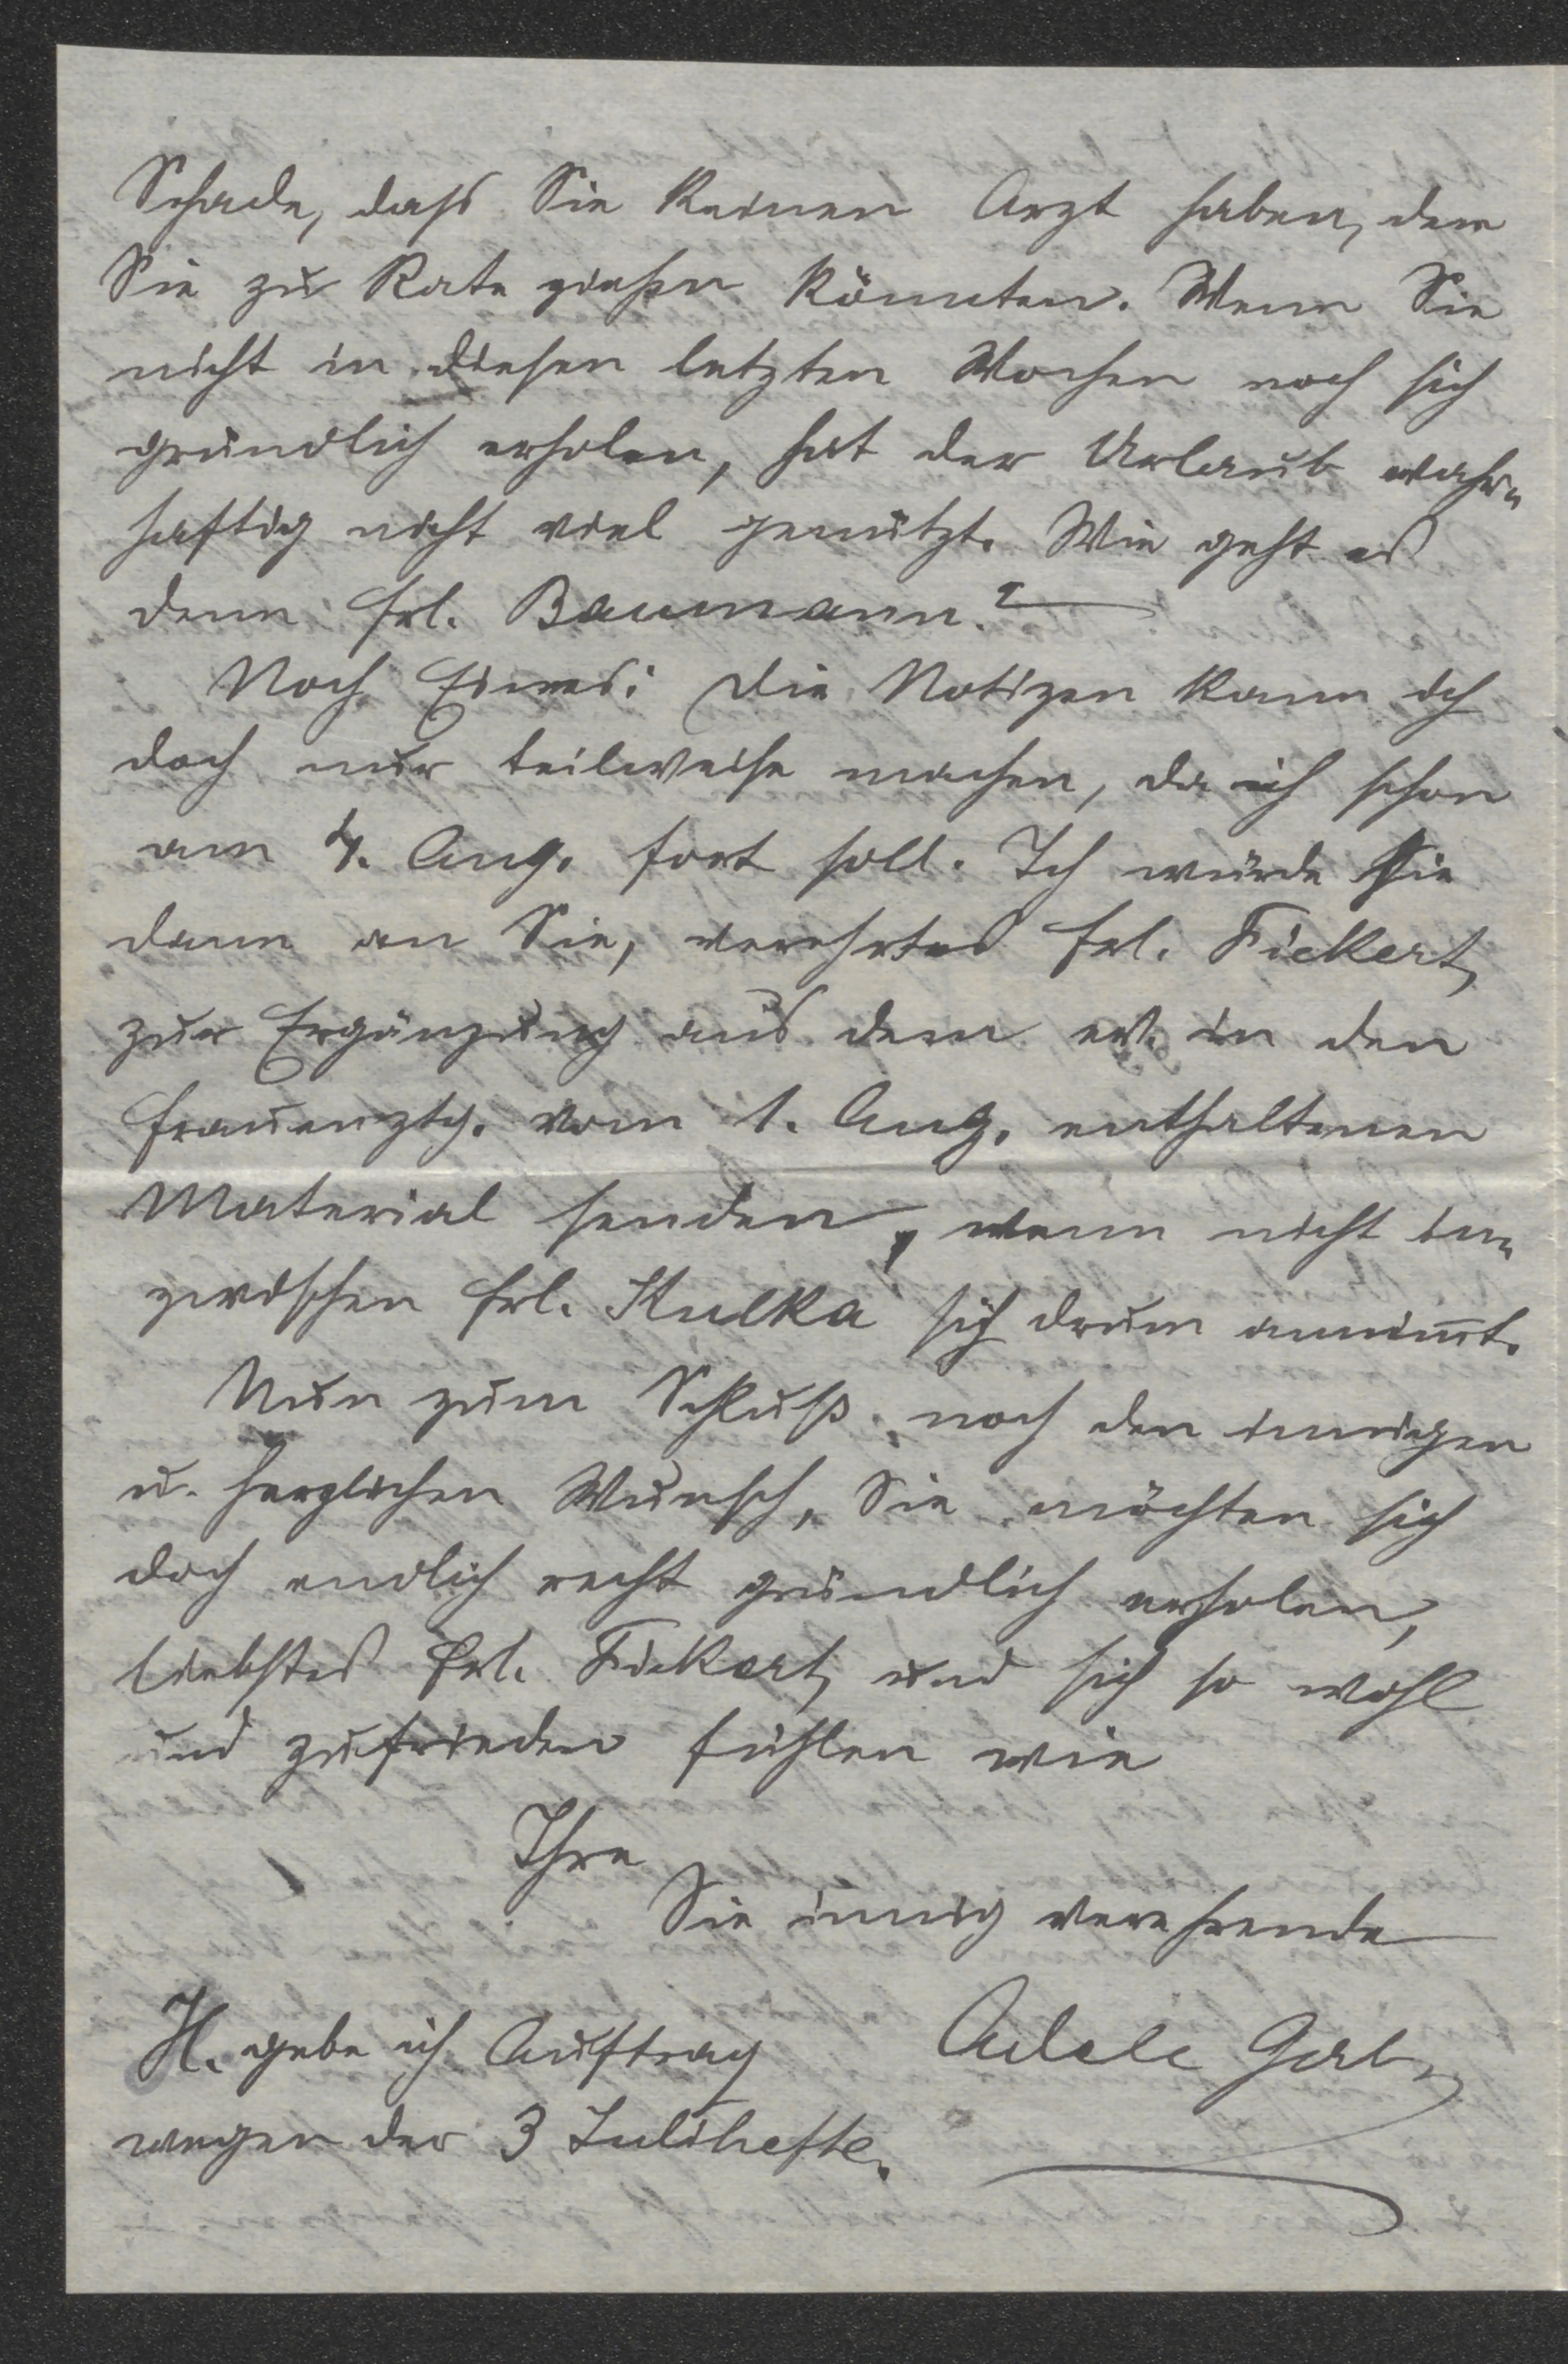 Schade, dass Sie keinen Arzt haben, den
Sie zu Rate ziehen könnten. Wenn Sie
nicht in diesen letzten Wochen noch sich
gründlich erholen, hat der Urlaub wahr-
haftig nicht viel genützt. Wie geht es
denn Frl. Baumann?
Noch Eines: Die Notizen kann ich
doch nur teilweise machen, da ich schon
am 4. Aug. fort soll. Ich würde sie
dann an Sie, verehrtes Frl. Fickert,
zur Ergänzung aus dem ev. in den
Frauenztg. vom 1. Aug. enthaltenen
Material senden, wenn nicht in-
zwischen Frl. Kulka sich drum annimmt.
Nun zum Schluß noch den innigen
u. herzlichen Wunsch, Sie möchten sich
doch endlich recht gründlich erholen,
liebstes Frl. Fickert, und sich so wohl
und zufrieden fühlen wie
Ihre
Sie innig verehrende
Adele Gerber
H. gebe ich Auftrag
wegen der 3 Julihefte.